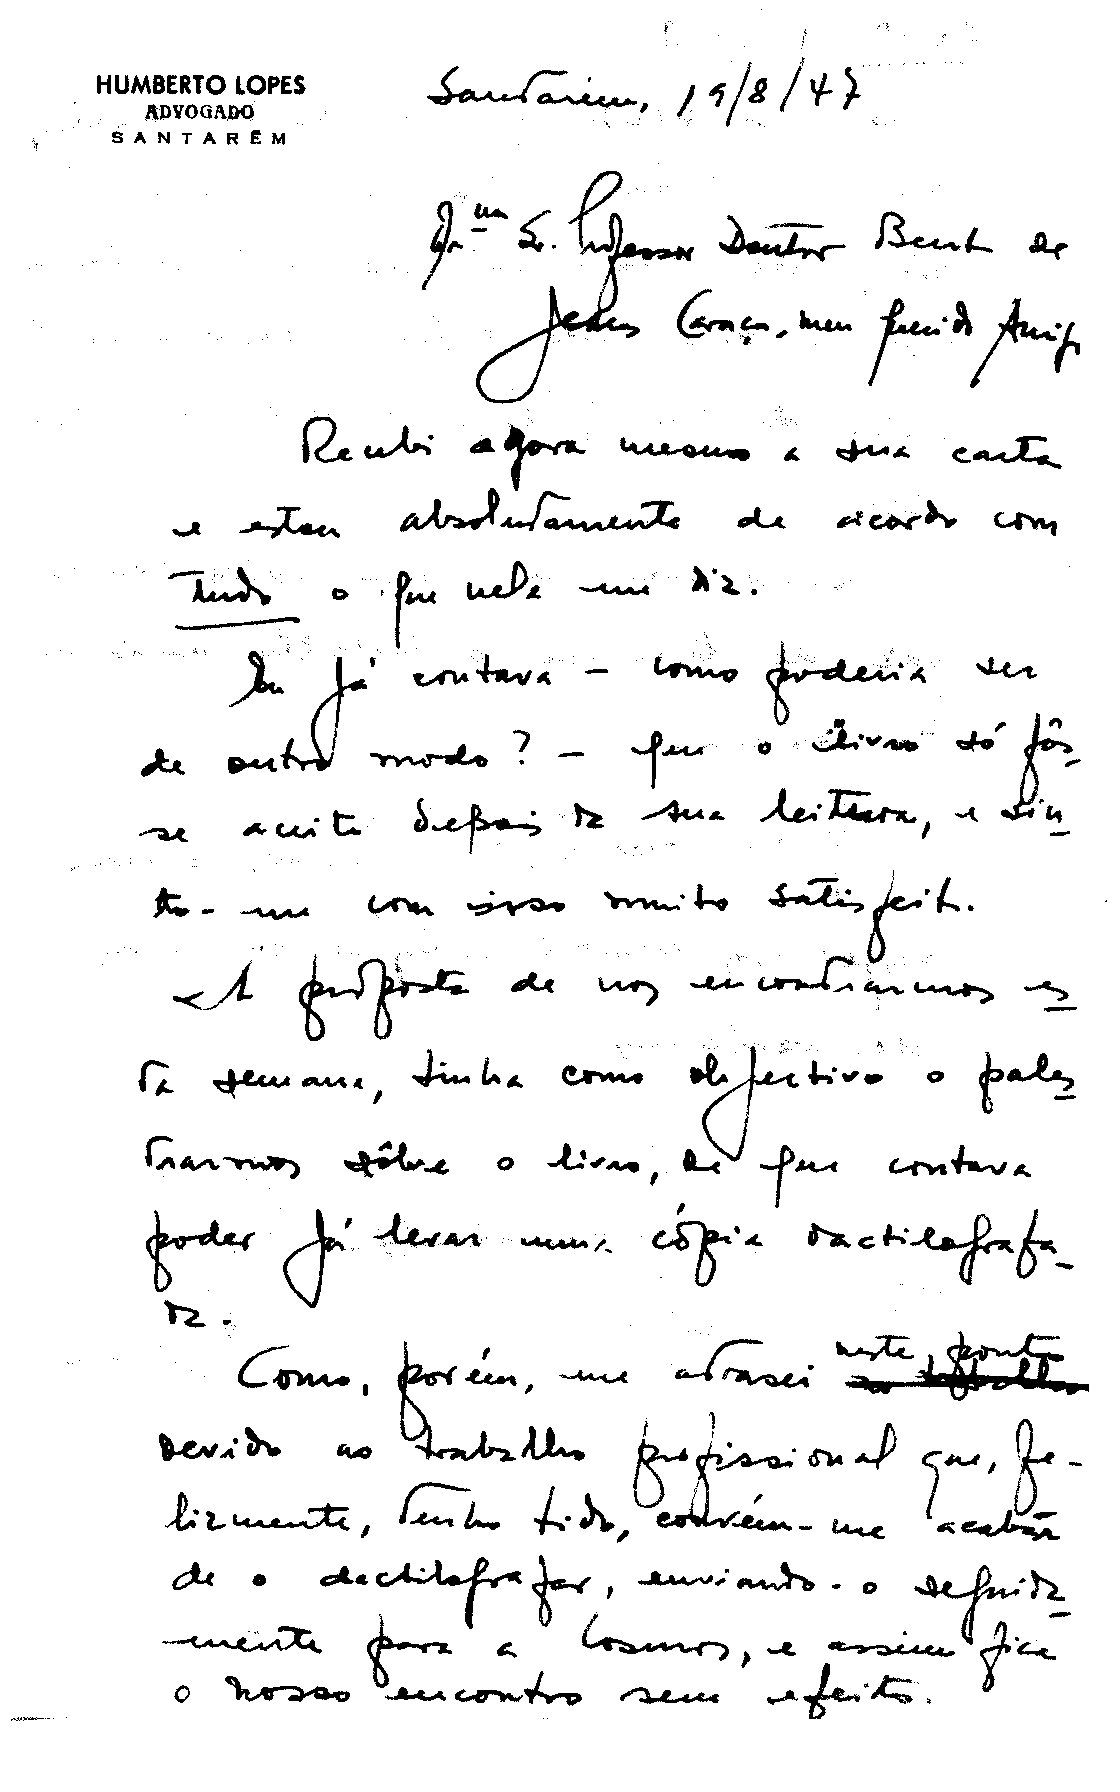 HUMBERTO LOPES
ADVOGADO
SANTARÉM
Santarém, 19/8/47
Sr. Professor Doutor Bento de
Jesus Caraça, meu querido Amigo
Recebi agora mesmo a sua carta
e estou absolutamente de acordo com
tudo o que nela me diz.
Eu já contava – como poderia ser
de outro modo? – que o livro só fôs-
se aceite depois da sua leitura, e sin-
to-me com isso muito satisfeito.
A proposta de nos encontrarmos es-
ta semana, tinha como objectivo o pales-
trarmos sôbre o livro, de que contava
poder já levar uma cópia dactilografa-
da.
Como, porém, me atrasei neste ponto
devido ao trabalho profissional que, fe-
lizmente, tenho tido, convém-me acabar
de o dactilografar, enviando-o seguida-
mente para a Cosmos, e assim fica
o nosso encontro sem efeito.